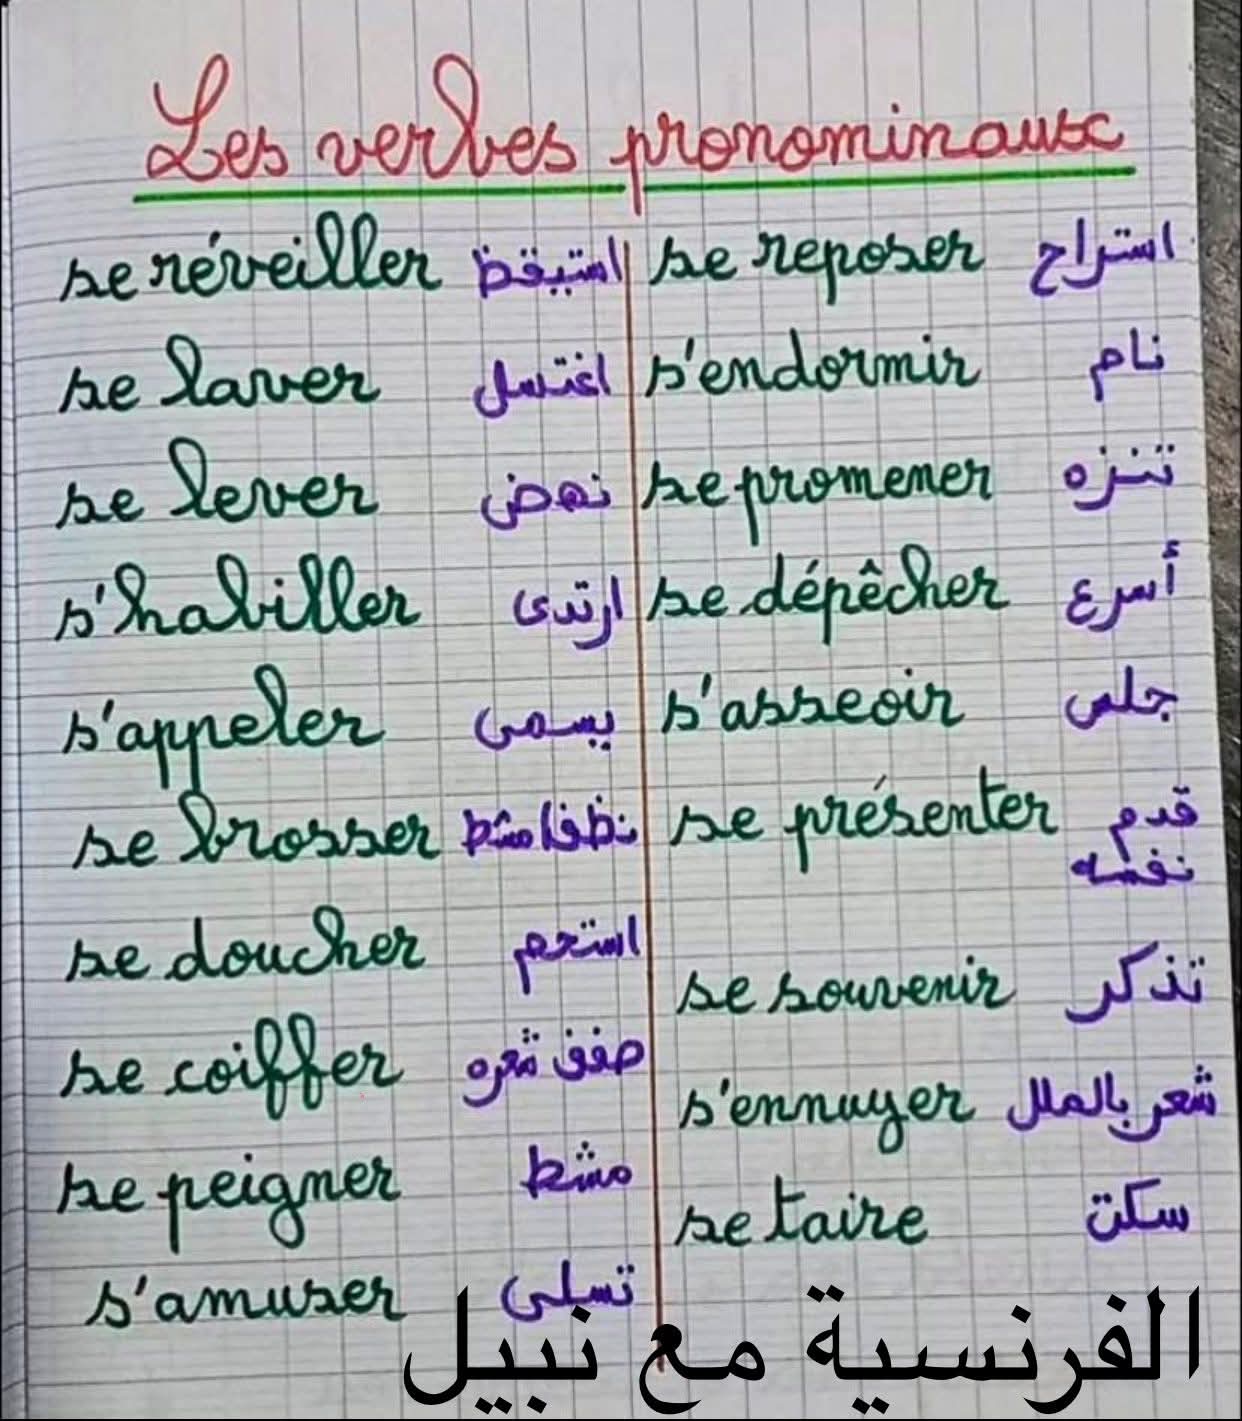 Les verbes pronominaux
se réveiller استيقظ
se laver اغتسل
se lever نهض
s'habiller ارتدى
s'appeler يسمى
se brosser نظف/مشط
se doucher استحم
se coiffer صفف شعره
se peigner مشط
s'amuser تسلى
se reposer استراح
s'endormir نام
se promener تنزه
se dépêcher أسرع
s'asseoir جلس
se présenter قدم
نفسه
se souvenir تذكر
s'ennuyer شعر بالملل
se taire سكت
الفرنسية مع نبيل